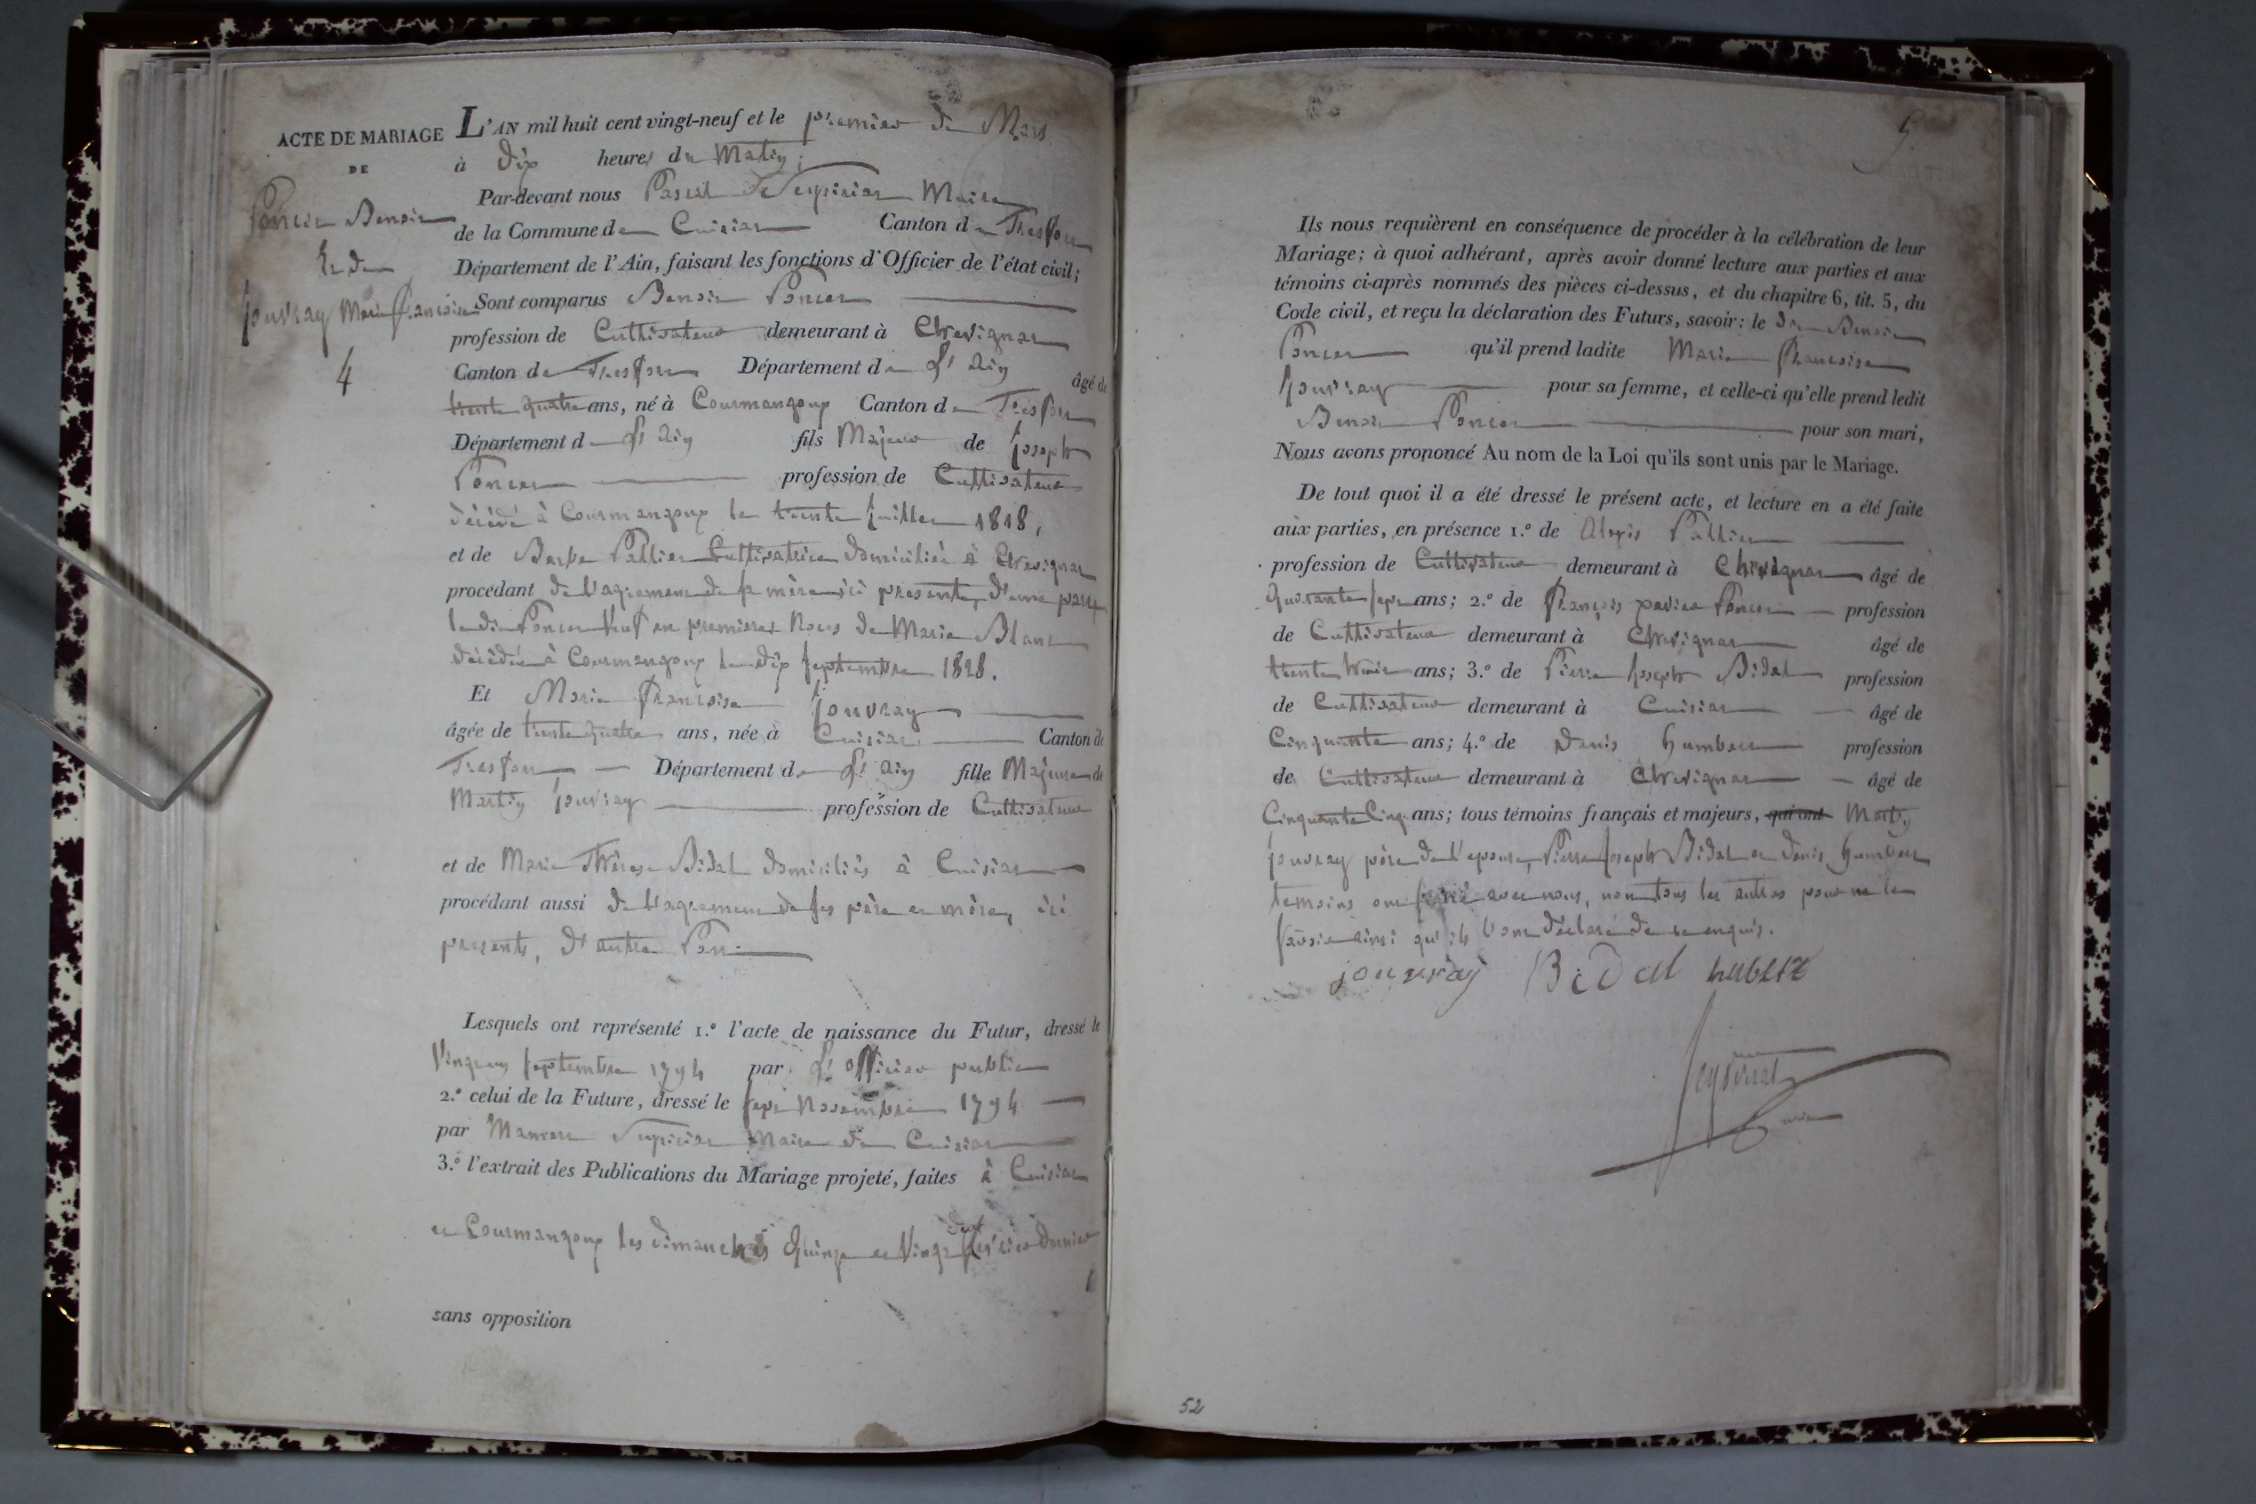 ACTE DE MARIAGE
DE
Poncet Benoit
Et de
Jouvray Marie françoise
4
L'AN mil huit cent vingt-neuf et le premier de Mars
à dix heures du Matin;
Par-devant nous Pascal Maire
de la Commune de Cuisiat Canton de Treffort
Département de l'Ain, faisant les fonctions d'Officier de l'état civil;
Sont comparus Benoit Poncet
profession de Cultivateur demeurant à Chevignat
Canton de Treffort Département de L'ain âgé de
trente quatre ans, né à Courmangoux Canton de Treffort
Département de L'ain fils Majeur de Joseph
Poncet profession de Cultivateur
décédé à Courmangoux le trente Juillet 1818,
et de Barbe Pallier Cultivatrice domiciliée à Chevignat
procédant de l'agrement de sa mère ici presente, d'une part,
le dit Poncet Veuf en premieres Noces de Marie Blanc
décédée à Courmangoux le dix septembre 1828.
Et Marie françoise Jouvray
âgée de trente quatre ans, née à Cuisiat Canton de
Treffort Département de L'ain fille Majeure de
Martin Jouvray profession de Cultivateur
et de Marie Thérese Bidal domiciliés à Cuisiat
procédant aussi de l'agrement de ses père et mère, ici
presents, d'autre Part
Lesquels ont représenté 1.º l'acte de naissance du Futur, dressé le
septembre 1794 par L'officier public
2.º celui de la Future, dressé le sept Novembre 1794
par Maire de Cuisiat
3.º l'extrait des Publications du Mariage projeté, faites à Cuisiat
et Courmangoux les dimanches Quinze et Vingt deux fevrier dernier
sans opposition
5.
Ils nous requièrent en conséquence de procéder à la célébration de leur
Mariage; à quoi adhérant, après avoir donné lecture aux parties et aux
témoins ci-après nommés des pièces ci-dessus, et du chapitre 6, tit. 5, du
Code civil, et reçu la déclaration des Futurs, savoir: le dit Benoit
Poncet qu'il prend ladite Marie françoise
Jouvray pour sa femme, et celle-ci qu'elle prend ledit
Benoit Poncet pour son mari,
Nous avons prononcé Au nom de la Loi qu'ils sont unis par le Mariage.
De tout quoi il a été dressé le présent acte, et lecture en a été faite
aux parties, en présence 1.º de Alexis Pallier
profession de Cultivateur demeurant à Chevignat âgé de
Quarante sept ans; 2.º de François Poncet profession
de Cultivateur demeurant à Chevignat âgé de
trente trois ans; 3.º de Pierre Joseph Bidal profession
de Cultivateur demeurant à Cuisiat âgé de
Cinquante ans; 4.º de Denis humbert profession
de Cultivateur demeurant à Chevignat âgé de
Cinquante Cinq ans; tous témoins français et majeurs, qui ont Martin
Jouvray père de l'epouse, Pierre Joseph Bidal et denis humbert
temoins ont signé avec nous, non tous les autres pour ne le
savoir ainsi qu'ils l'ont déclaré de ce enquis.
jouvray Bidal
52